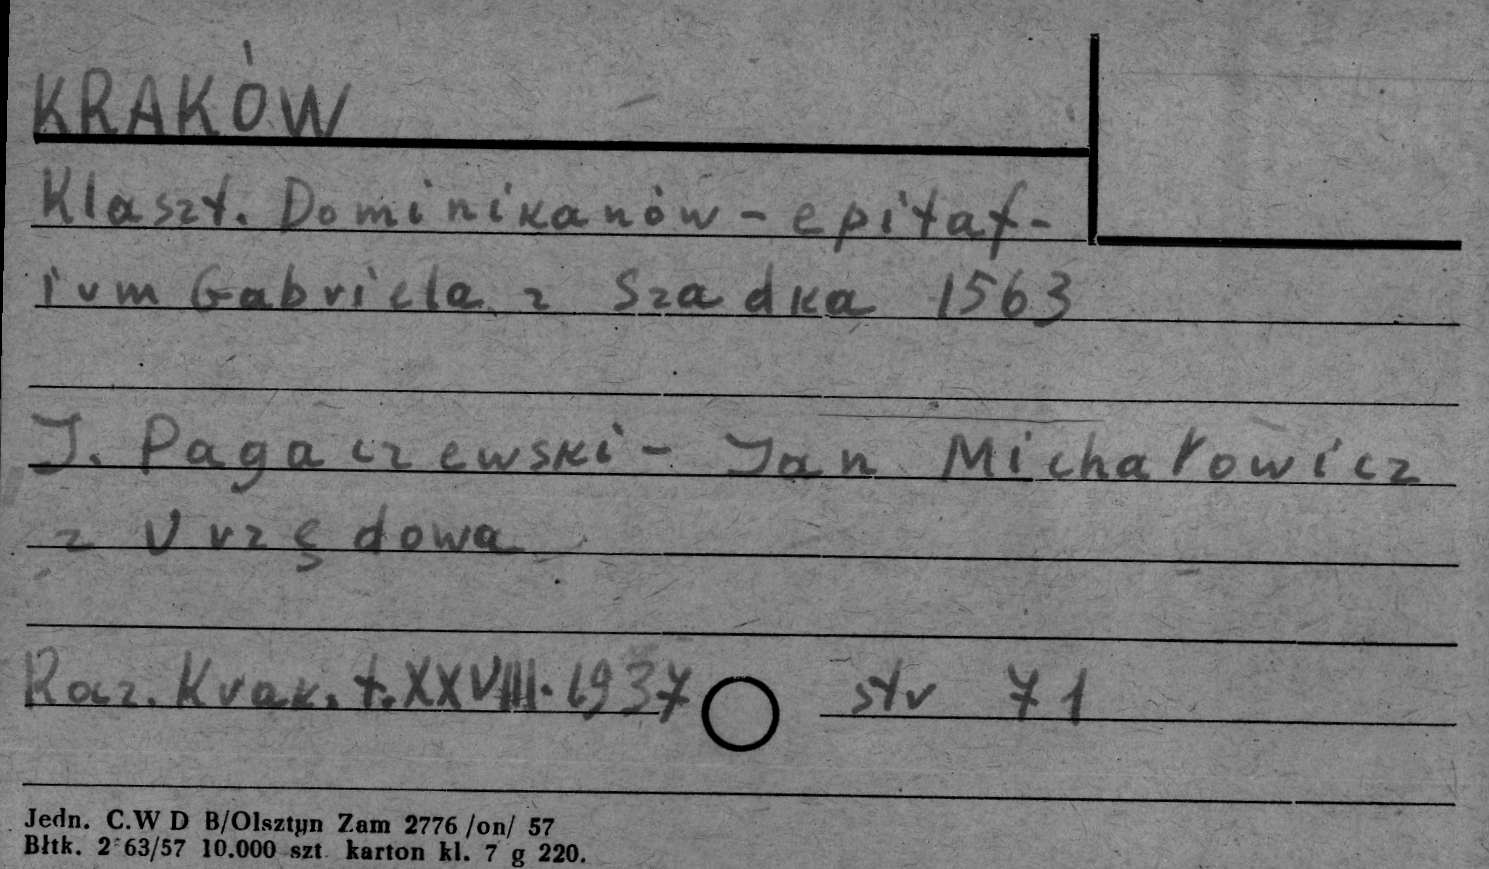 KRAKÓW
Klaszt. Dominikanów - epitaf-
ium Gabriela z Szadka 1563
J. Pagaczewski - Jan Michałowicz
z Urzędowa
Rocz. Krak. t. XXVIII. 1937 str 71
Jedn. C.W D B/Olsztyn Zam 2776 /on/ 57
Błtk. 2 63/57 10.000 szt karton kl. 7 g 220.